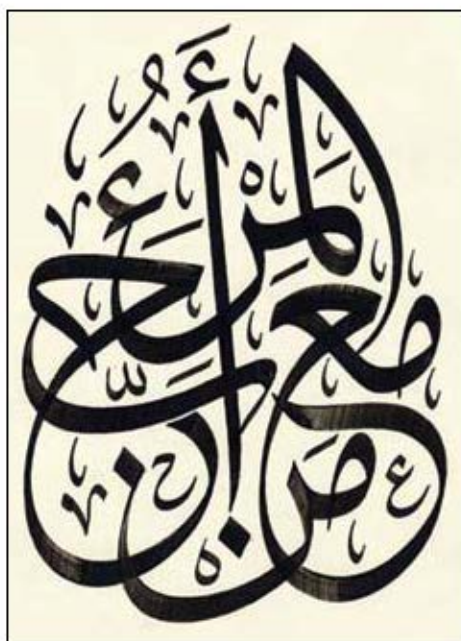 المَرْءُ مع مَن أَحَبَّ